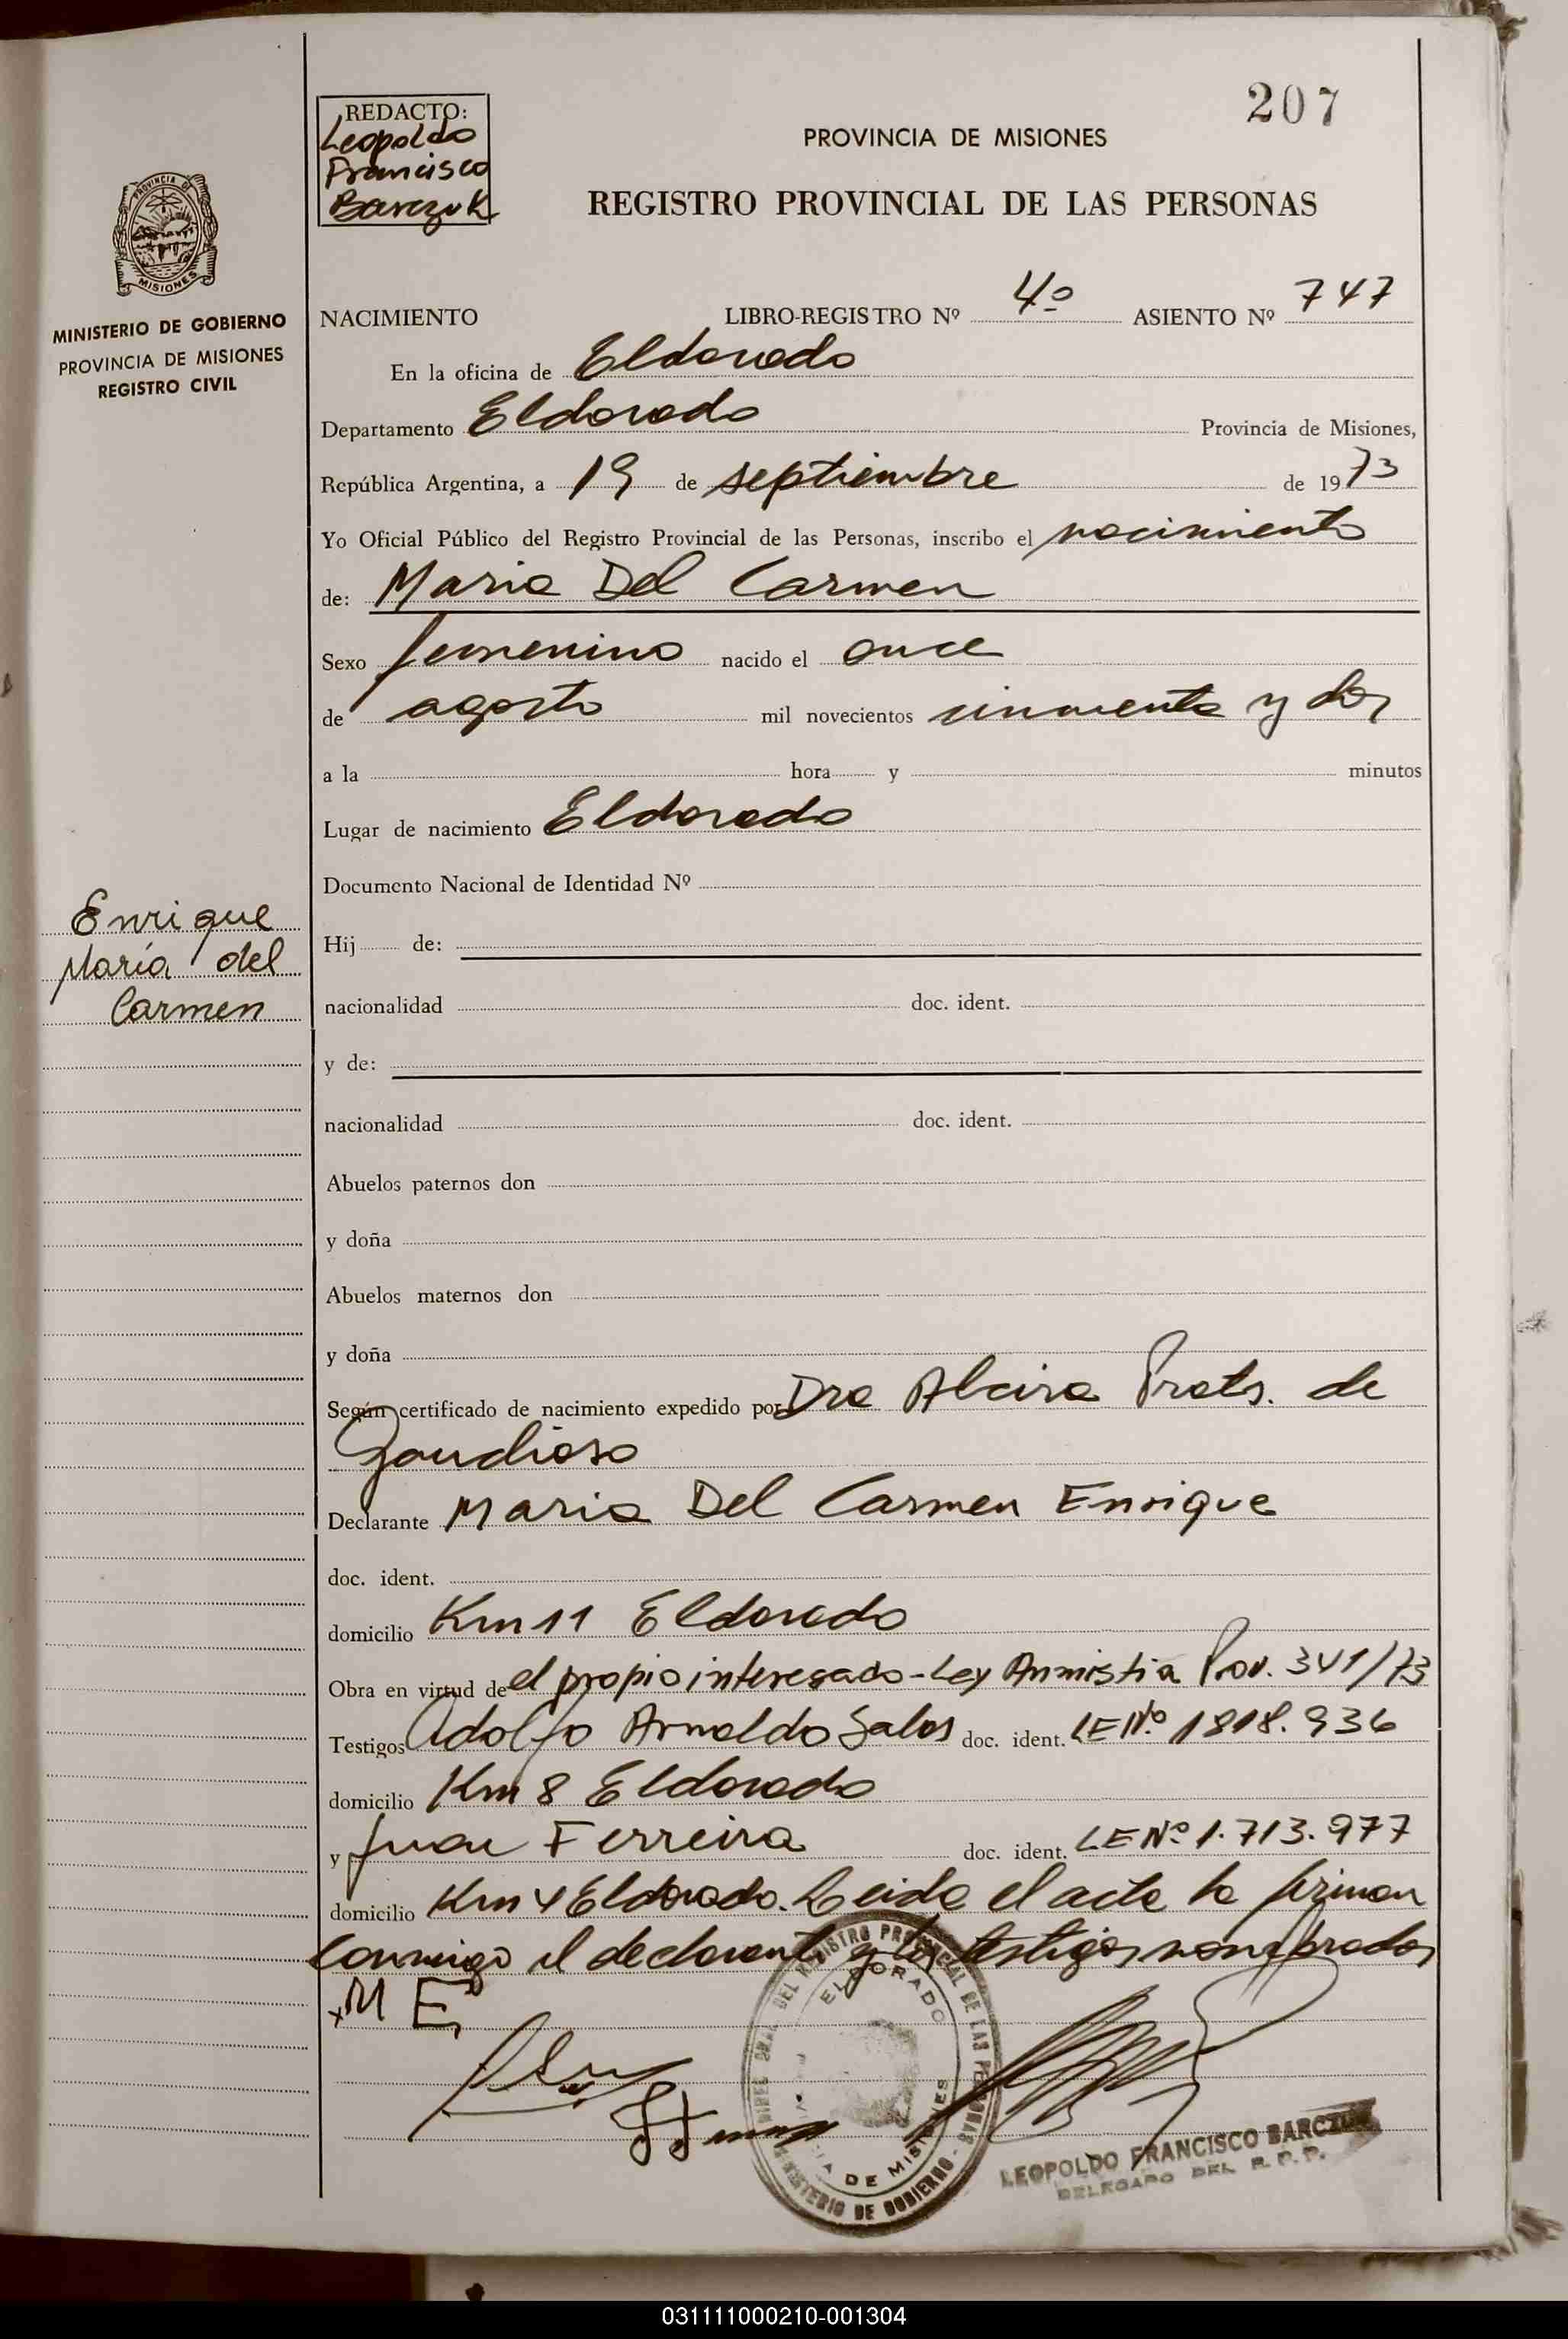 207
REDACTO:
Leopoldo
Francisco
Barczuk
PROVINCIA DE MISIONES
REGISTRO PROVINCIAL DE LAS PERSONAS
PROVINCIA DE
MISIONES
MINISTERIO DE GOBIERNO
PROVINCIA DE MISIONES
REGISTRO CIVIL
NACIMIENTO LIBRO-REGISTRO Nº 4º ASIENTO Nº 747
En la oficina de Eldorado
Departamento Eldorado Provincia de Misiones,
República Argentina, a 19 de septiembre de 1973
Yo Oficial Público del Registro Provincial de las Personas, inscribo el nacimiento
de: Maria Del Carmen
Sexo femenino nacido el once
de agosto mil novecientos cincuenta y dos
a la hora y minutos
Lugar de nacimiento Eldorado
Documento Nacional de Identidad Nº
Enrique
María del
Carmen
Hij de:
nacionalidad doc. ident.
y de:
nacionalidad doc. ident.
Abuelos paternos don
y doña
Abuelos maternos don
y doña
Según certificado de nacimiento expedido por Dra Alcira Prats. de
Gaudioso
Declarante Maria Del Carmen Enrique
doc. ident.
domicilio Km 11 Eldorado
Obra en virtud de el propio interesado - Ley Amnistia Prov. 341/73
Testigos Adolfo Arnoldo Salas doc. ident. LE Nº 1818.936
domicilio Km 8 Eldorado
y Juan Ferreira doc. ident. LE Nº 1.713.977
domicilio Km 4 Eldorado. Leida el acta la firman
conmigo el declarante y los testigos nombrados
x M E
DEL REGISTRO PROVINCIAL DE LAS PERSONAS
ELDORADO
PROVINCIA DE MISIONES
MINISTERIO DE GOBIERNO
LEOPOLDO FRANCISCO BARCZUK
DELEGADO DEL R. P. P.
031111000210-001304